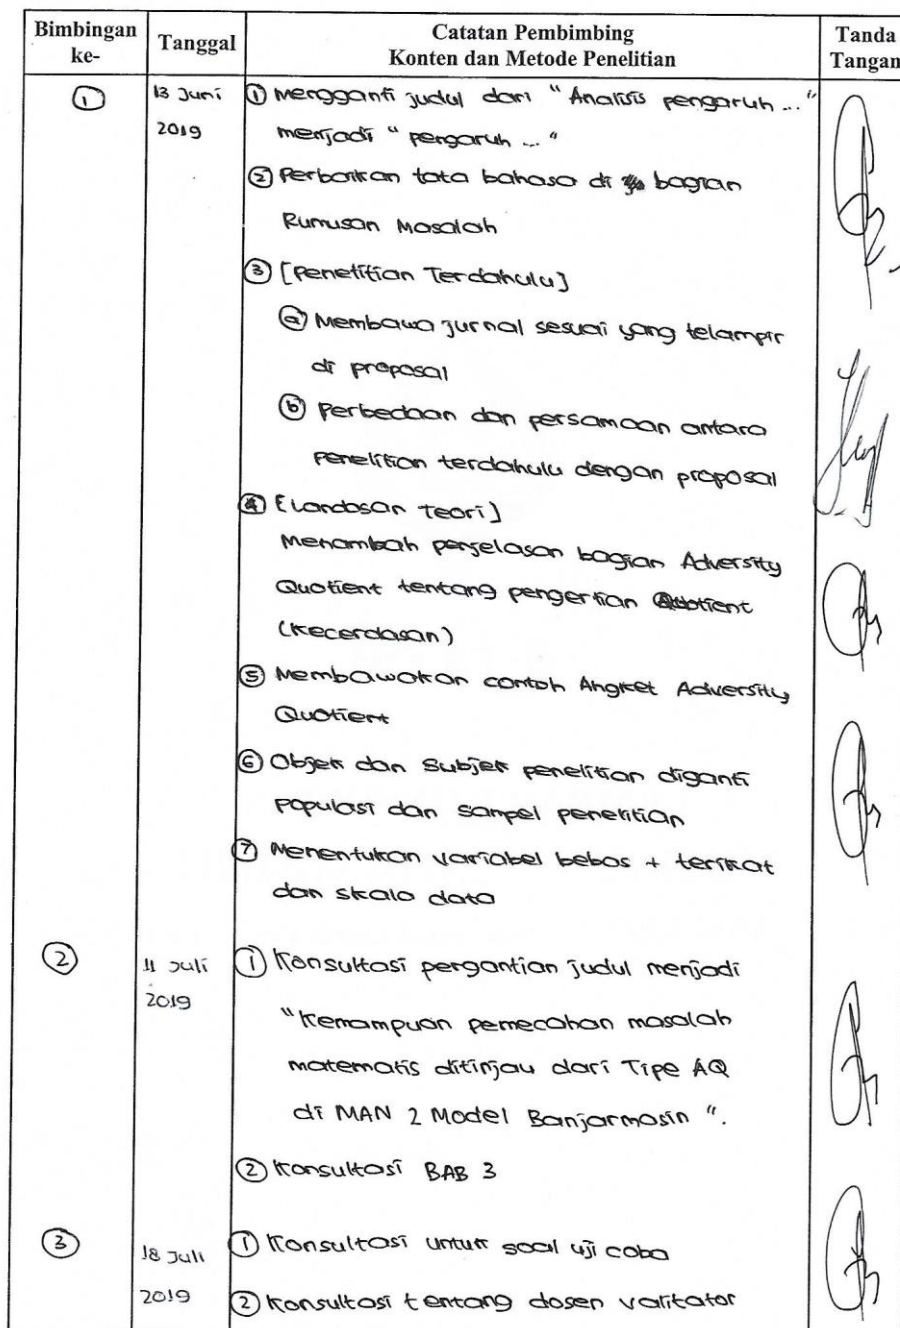 Bimbingan ke-
Tanggal
Catatan Pembimbing
Konten dan Metode Penelitian
Tanda Tangan
1
13 Juni 2019
① Mengganti judul dari "Analisis pengaruh ..."
menjadi "pengaruh ..."
② Perbaikan tata bahasa di bagian
Rumusan Masalah
③ [Penelitian Terdahulu]
ⓐ Membawa jurnal sesuai yang telampir
di proposal
ⓑ Perbedaan dan persamaan antara
penelitian terdahulu dengan proposal
④ [Landasan Teori]
Menambah penjelasan bagian Adversity
Quotient tentang pengertian Quotient
(Kecerdasan)
⑤ Membawakan contoh Angket Adversity
Quotient
⑥ Objek dan Subjek penelitian diganti
Populasi dan sampel penelitian
⑦ Menentukan variabel bebas + terikat
dan skala data
2
11 Juli 2019
① Konsultasi pergantian judul menjadi
"Kemampuan pemecahan masalah
matematis ditinjau dari Tipe AQ
di MAN 2 Model Banjarmasin".
② Konsultasi BAB 3
3
18 Juli 2019
① Konsultasi untuk soal uji coba
② Konsultasi tentang dosen valitator